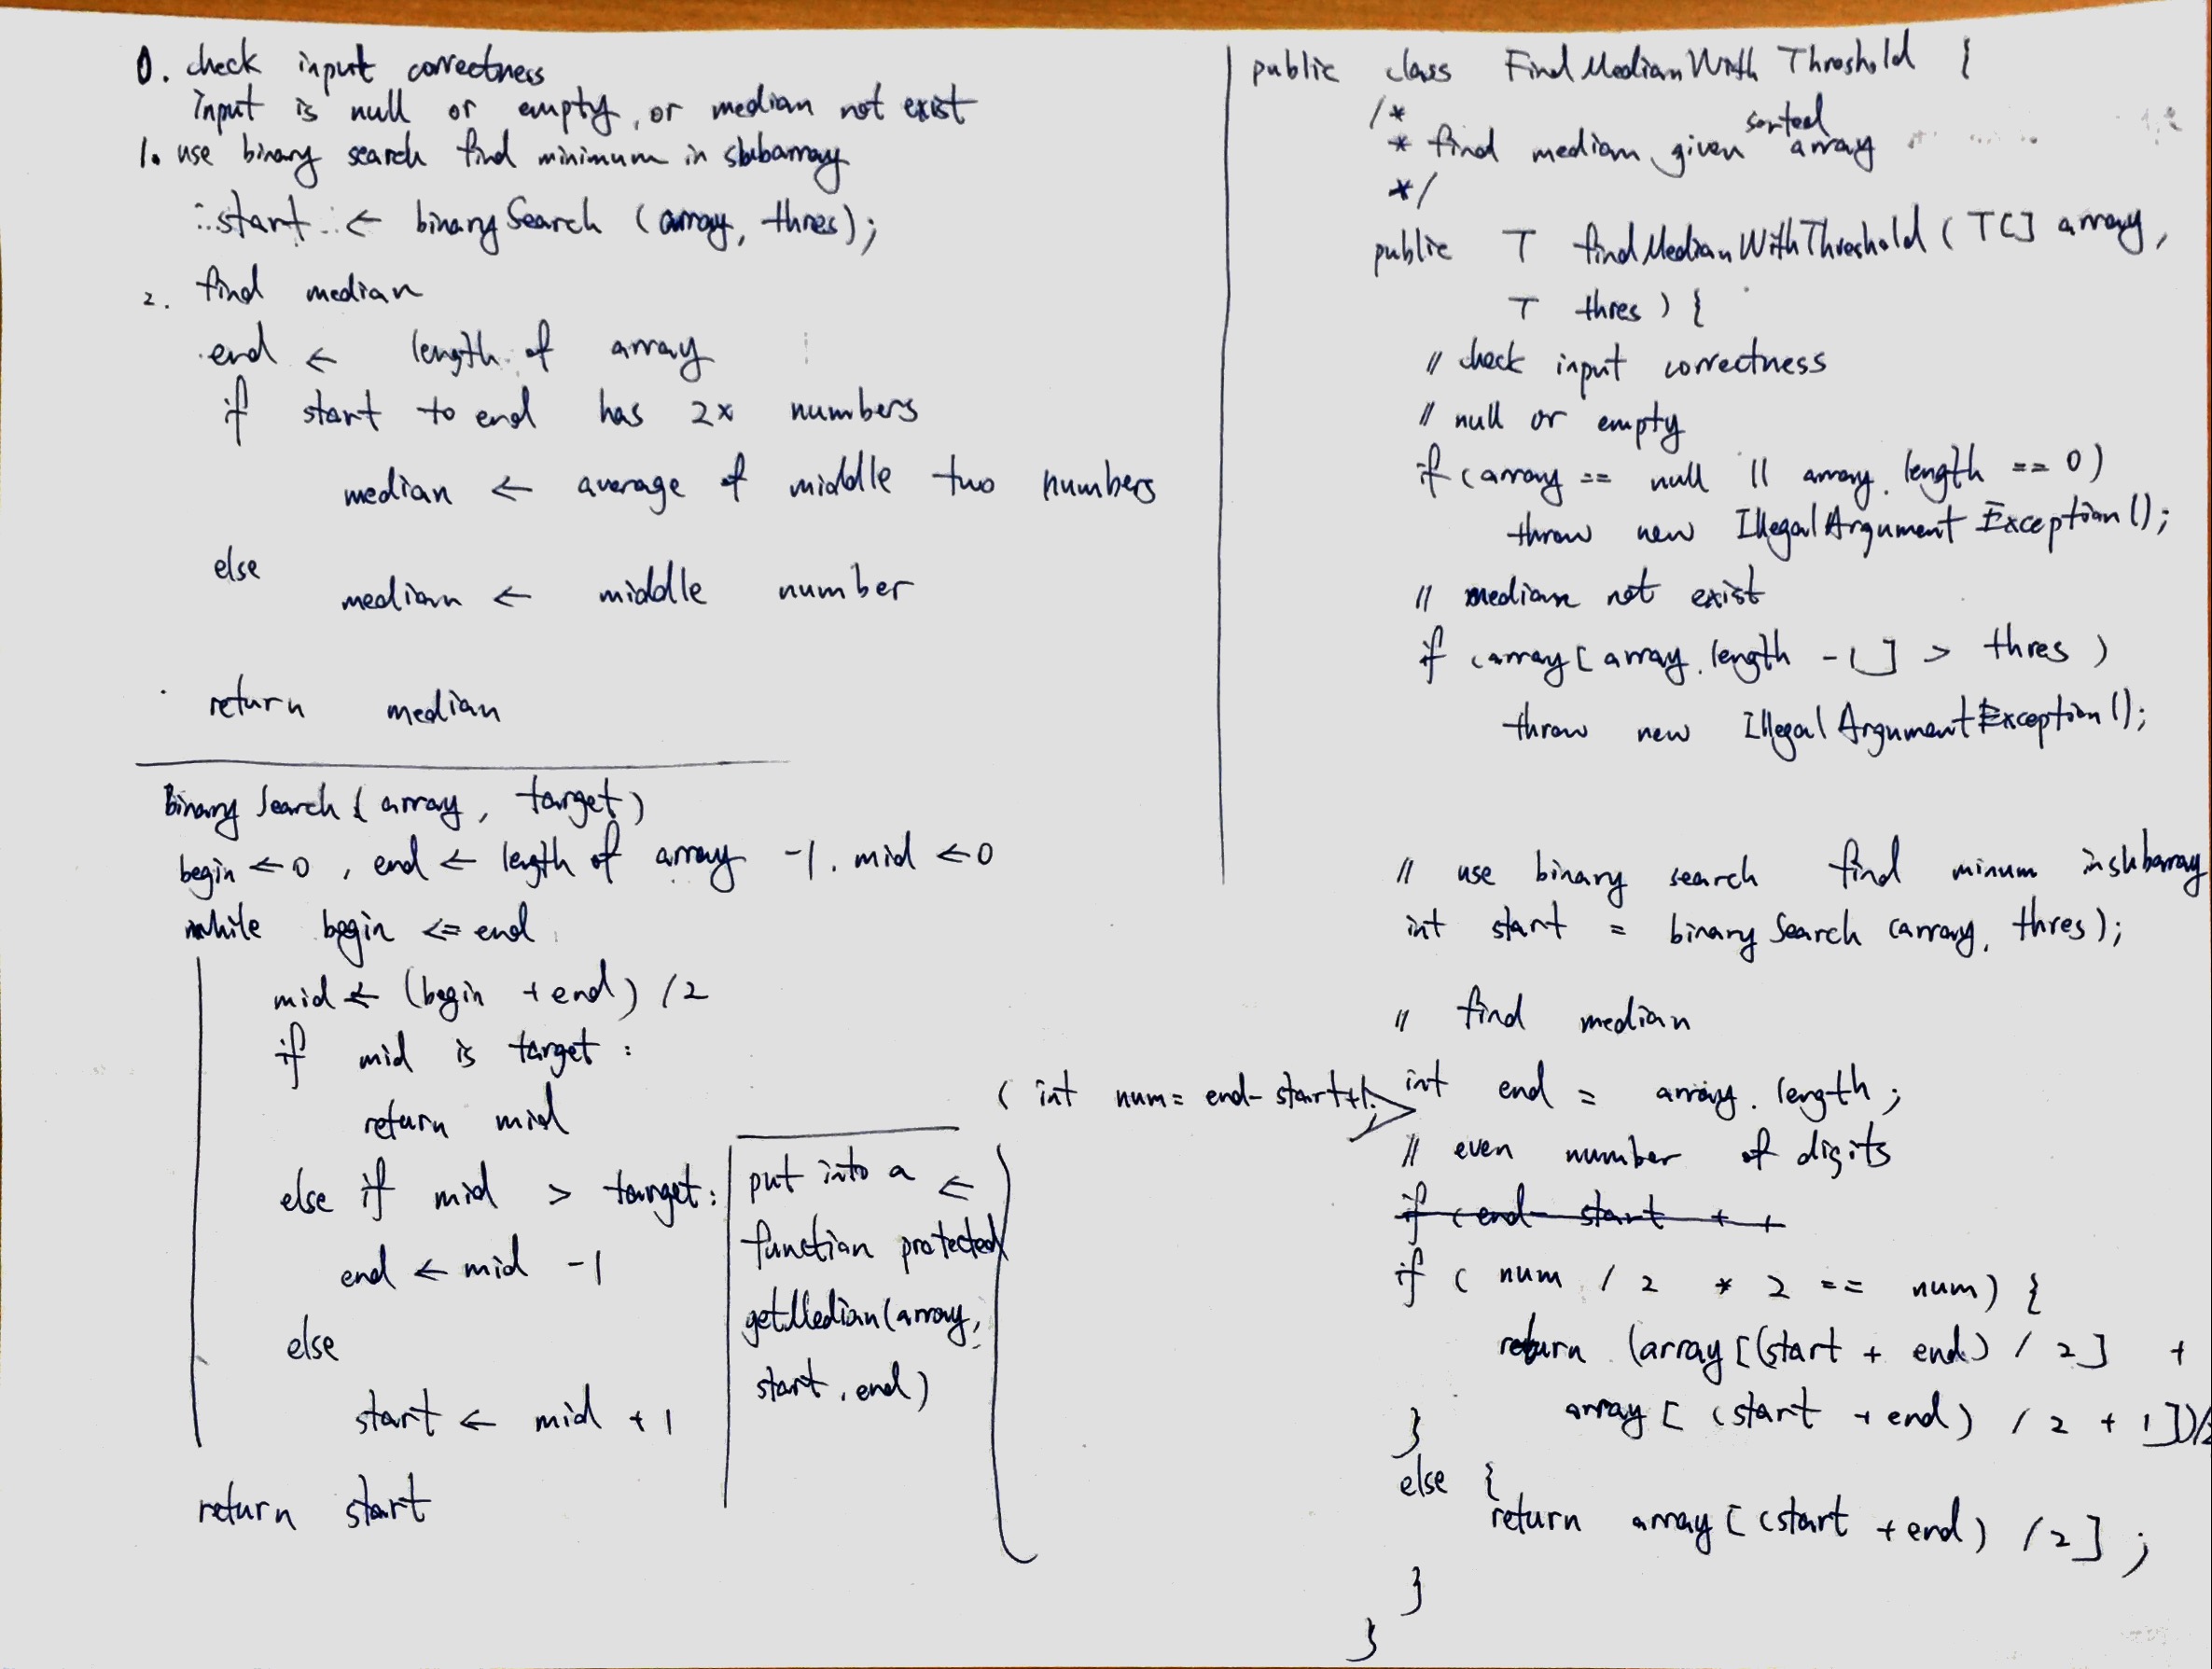 0. check input correctness
Input is null or empty, or median not exist
1. use binary search find minimum in subarray
start ← binarySearch (array, thres);
2. find median
end ← length of array
if start to end has 2x numbers
median ← average of middle two numbers
else
median ← middle number
return median
Binary Search (array, target)
begin ← 0, end ← length of array -1. mid ← 0
while begin <= end
mid ← (begin + end) / 2
if mid is target:
return mid
else if mid > target:
end ← mid -1
else
start ← mid + 1
return start
put into a ←
function protected
getMedian(array,
start, end)
public class FindMedianWithThreshold {
/*
sorted
* find median given array
*/
public T findMedianWithThreshold (T[] array,
T thres) {
// check input correctness
// null or empty
if (array == null || array.length == 0)
throw new IllegalArgumentException();
// median not exist
if (array[array.length -1] > thres)
throw new IllegalArgumentException();
// use binary search find minum in subarray
int start = binarySearch (array, thres);
// find median
( int num= end-start+1;
int end = array.length;
// even number of digits
if (end- start + +
if ( num / 2 * 2 == num) {
return (array[(start + end) / 2] +
array[ (start + end) / 2 + 1])/2
}
else {
return array[(start + end) /2];
}
}